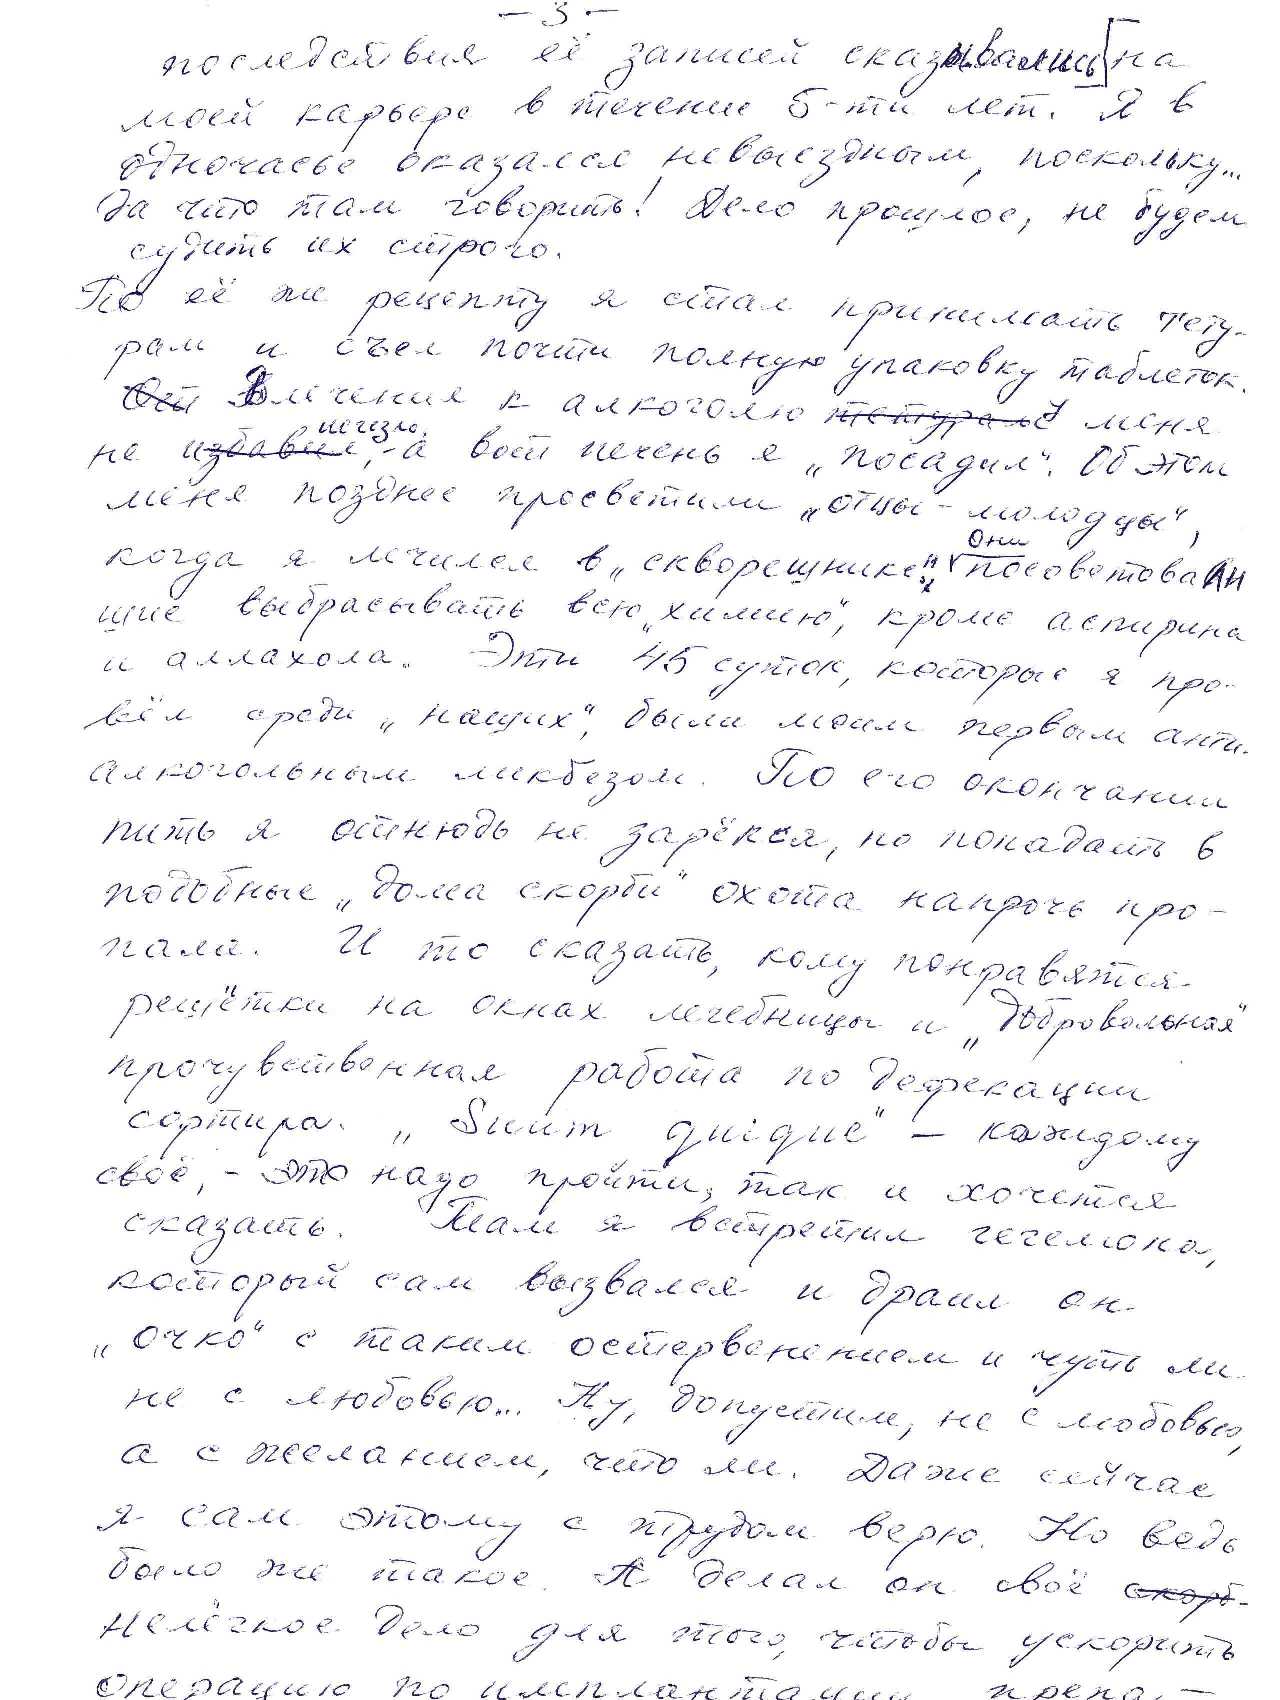 - 3 -
последствия её записей сказывались на
моей карьере в течение 5-ти лет. Я в
одночасье оказался невыездным, поскольку...
Да что там говорить! Дело прошлое, не будем
судить их строго.
По её же рецепту я стал принимать тету-
рам и съел почти полную упаковку таблеток.
От Влечение к алкоголю тетурам у меня
исчезло,
не избавил, - а вот печень я „посадил“. Об этом
меня позднее просветили „отцы - молодцы“,
Они
когда я лечился в „скворешнике“, посоветовав
шие выбрасывать всю „химию“, кроме аспирина
и аллахола. Эти 45 суток, которые я про-
вёл среди „наших“, были моим первым анти-
алкогольным ликбезом. По его окончании
пить я отнюдь не зарёкся, но попадать в
подобные „дома скорби“ охота напрочь про-
пала. И то сказать, кому понравятся
решётки на окнах лечебницы и „добровольная“
прочувственная работа по дефекации
сортира. „Suum quique“ - каждому
своё, - это надо пройти, так и хочется
сказать. Там я встретил гегемона,
который сам вызвался и драил он
„очко“ с таким остервенением и чуть ли
не с любовью... Ну, допустим, не с любовью,
а с желанием, что ли. Даже сейчас
я сам этому с трудом верю. Но ведь
было же такое. А делал он своё скорб-
нелёгкое дело для того, чтобы ускорить
операцию по имплантации препа-